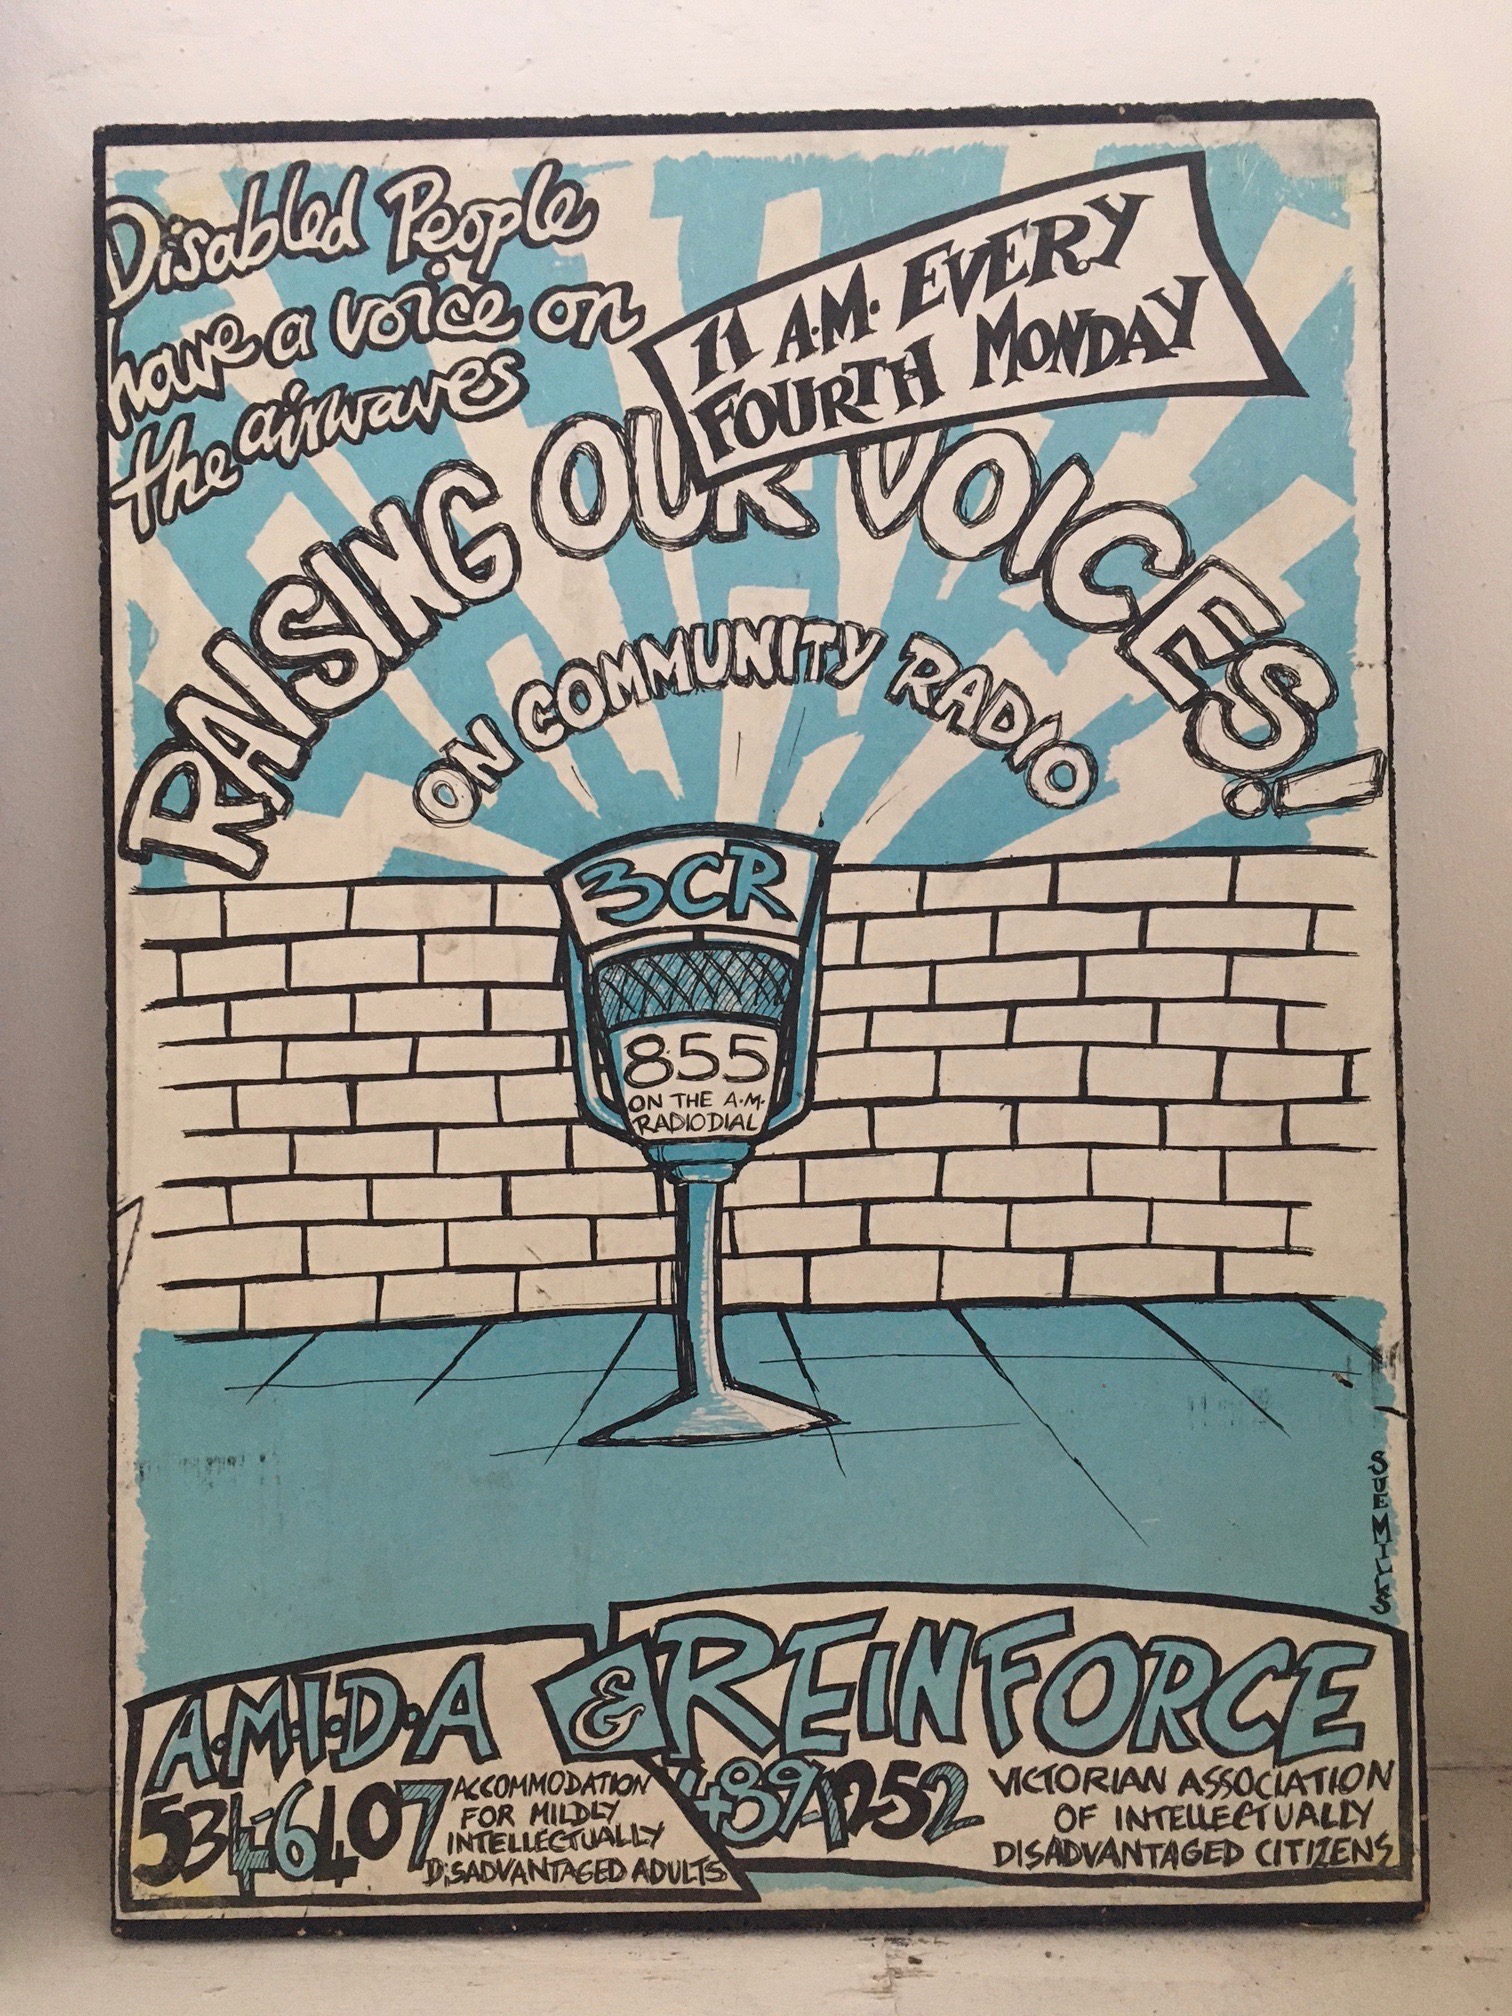 Disabled People
have a voice on
the airwaves
11 A.M. EVERY
FOURTH MONDAY
RAISING OUR VOICES!
ON COMMUNITY RADIO
3CR
855
ON THE A.M.
RADIO DIAL
SUE MILLS
A.M.I.D.A & REINFORCE
534-6407
ACCOMMODATION
FOR MILDLY
INTELLECTUALLY
DISADVANTAGED ADULTS
489 1252
VICTORIAN ASSOCIATION
OF INTELLECTUALLY
DISADVANTAGED CITIZENS